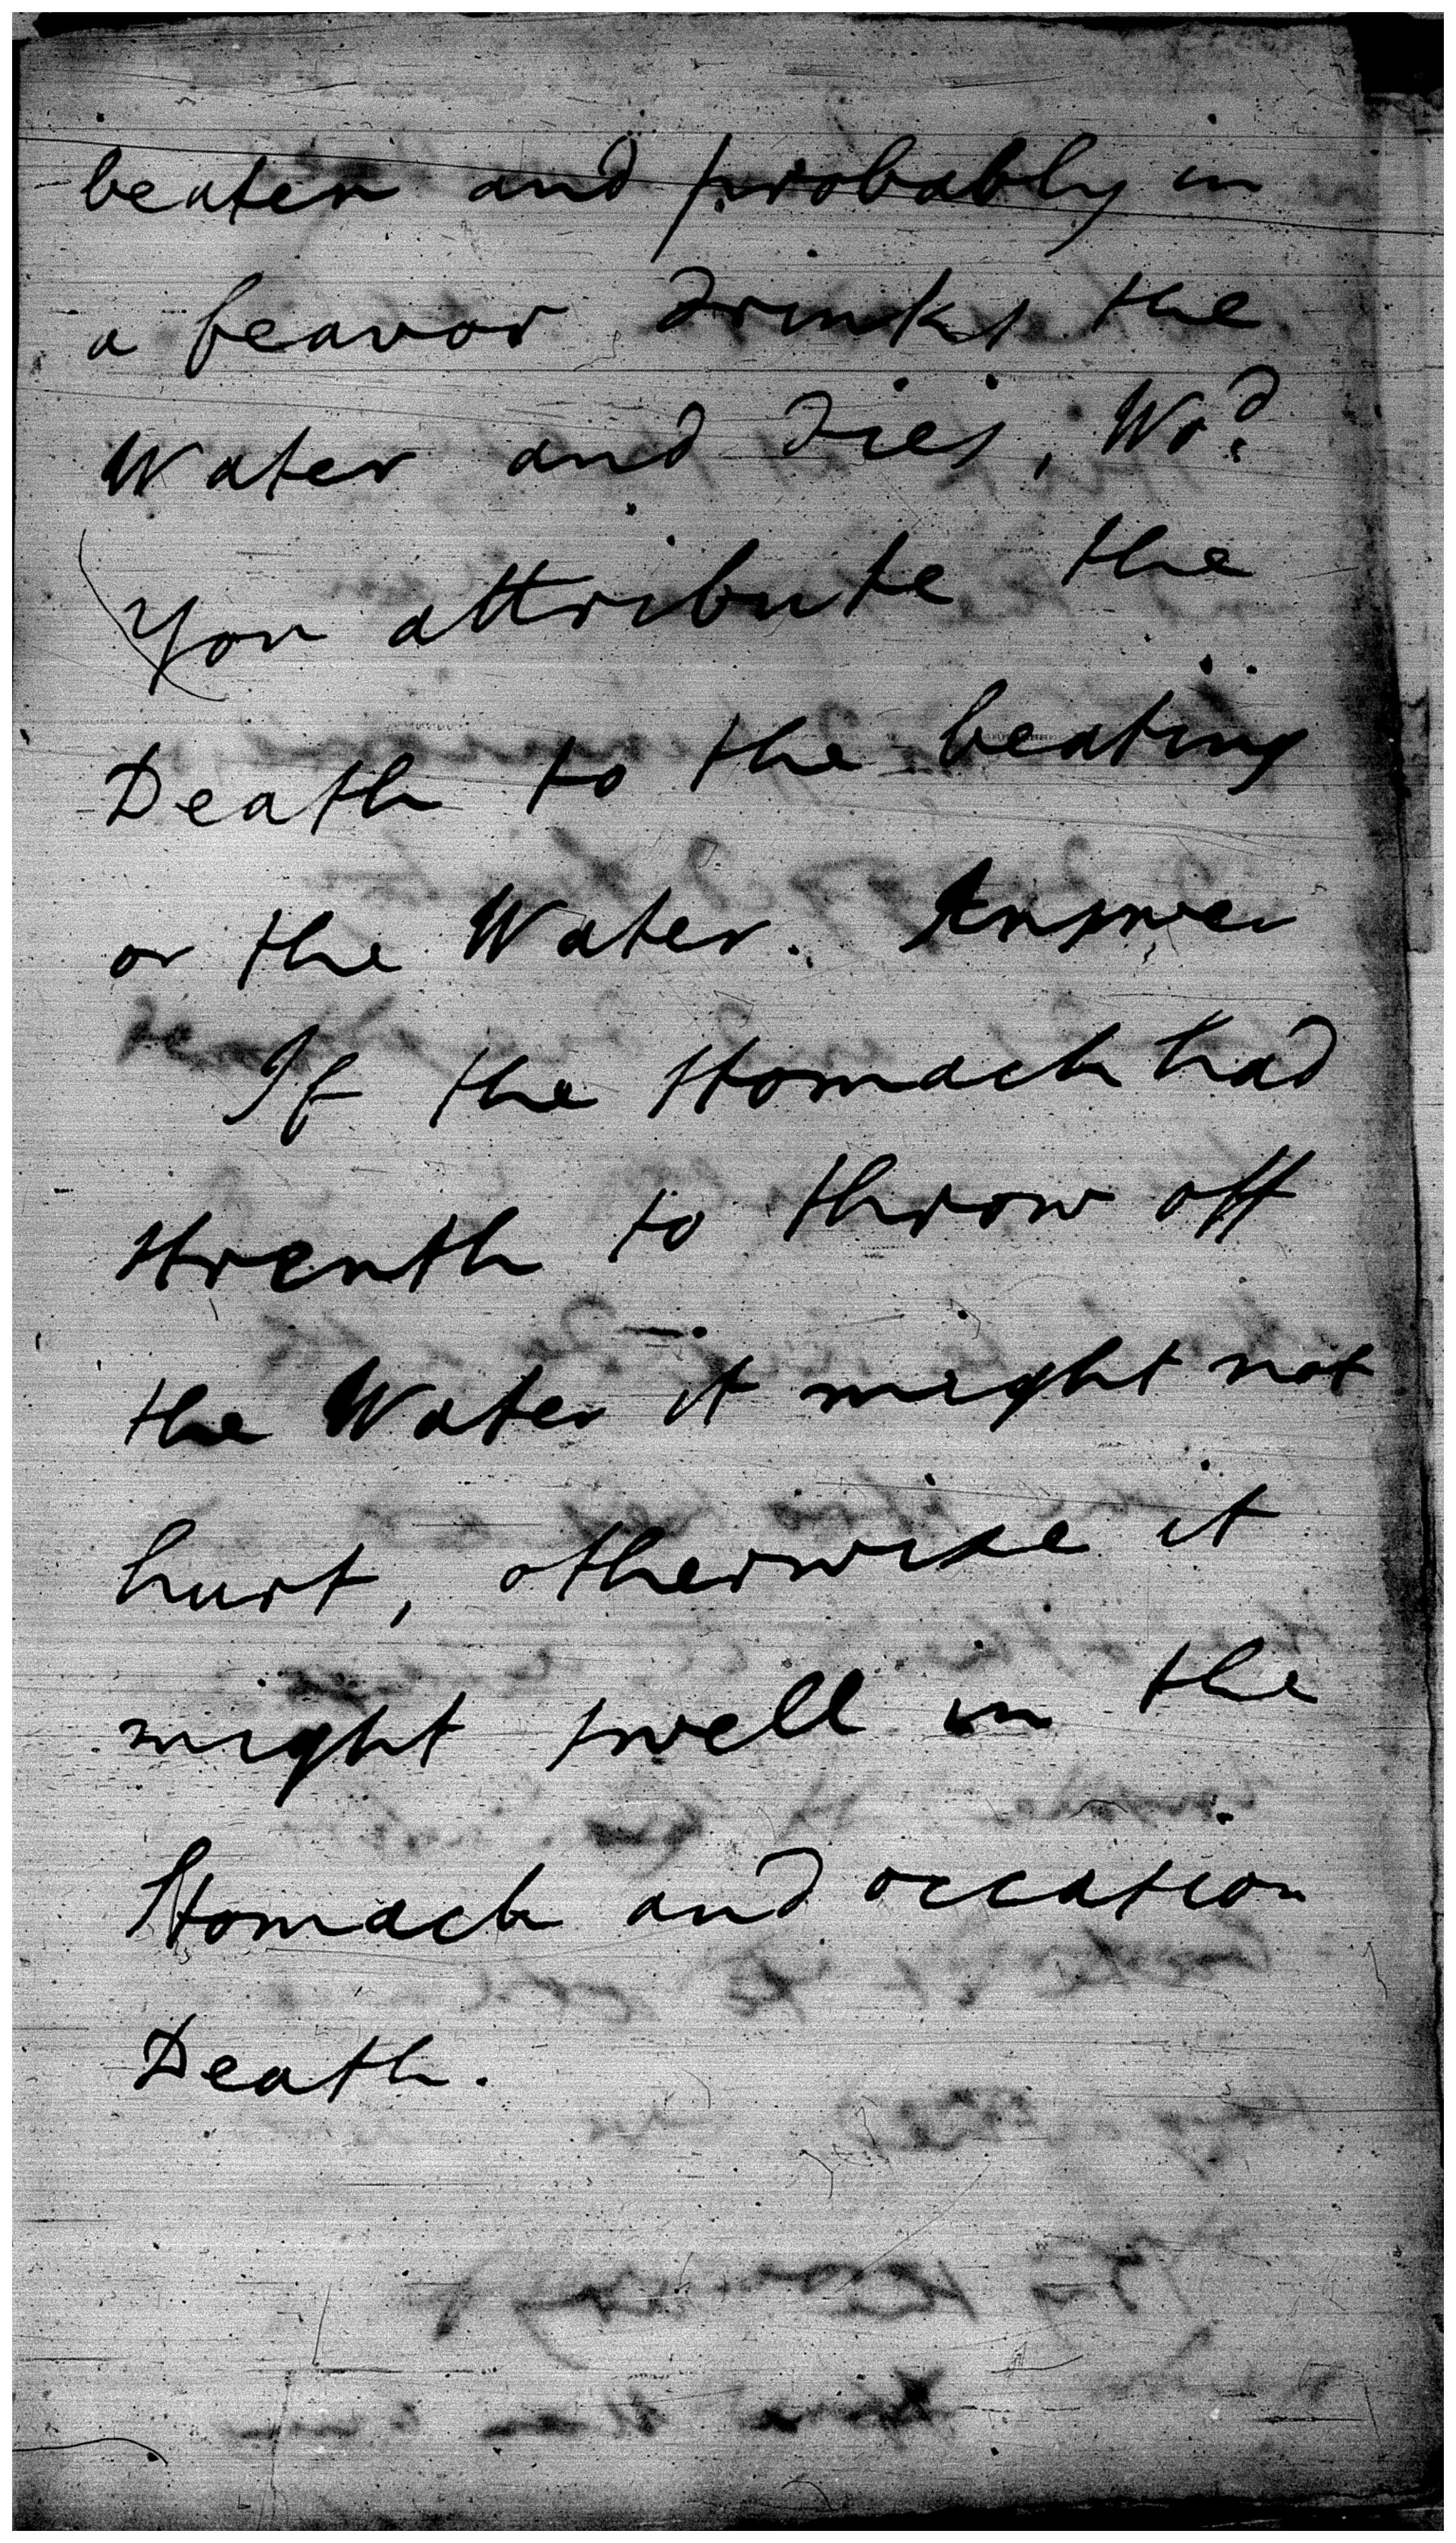 beaten and probably in
a feavor drinks the
Water and dies, Wo.d
You attribute the
Death to the beating
or the Water. Answer
If the Stomach had
strenth to throw off
the Water it might not
hurt, otherwise it
might swell in the
Stomach and occation
Death.